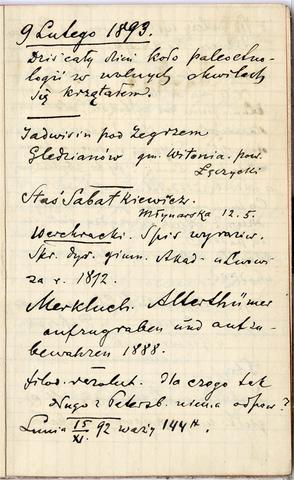 9 Lutego 1893.
Dziś cały dzień koło paleoetno-
logii w wolnych chwilach
się krzątałem.
Jadwisin pod Zegrzem
Gledzianów gm. Witonia. pow.
Łęczycki
Staś Sabatkiewicz.
Młynarska 12.5.
Werchracki. Spis wyrazów.
Spr. dyr. gimn. Akad. we Lwowie
za r. 1872.
Merkbuch. Alterthümer
aufzugraben und aufzu-
bewahren 1888.
filos. rezolut. dla czego tak
długo z Petersb. niema odpow?
Lunia 15/XI. 92 waży 144 ft.